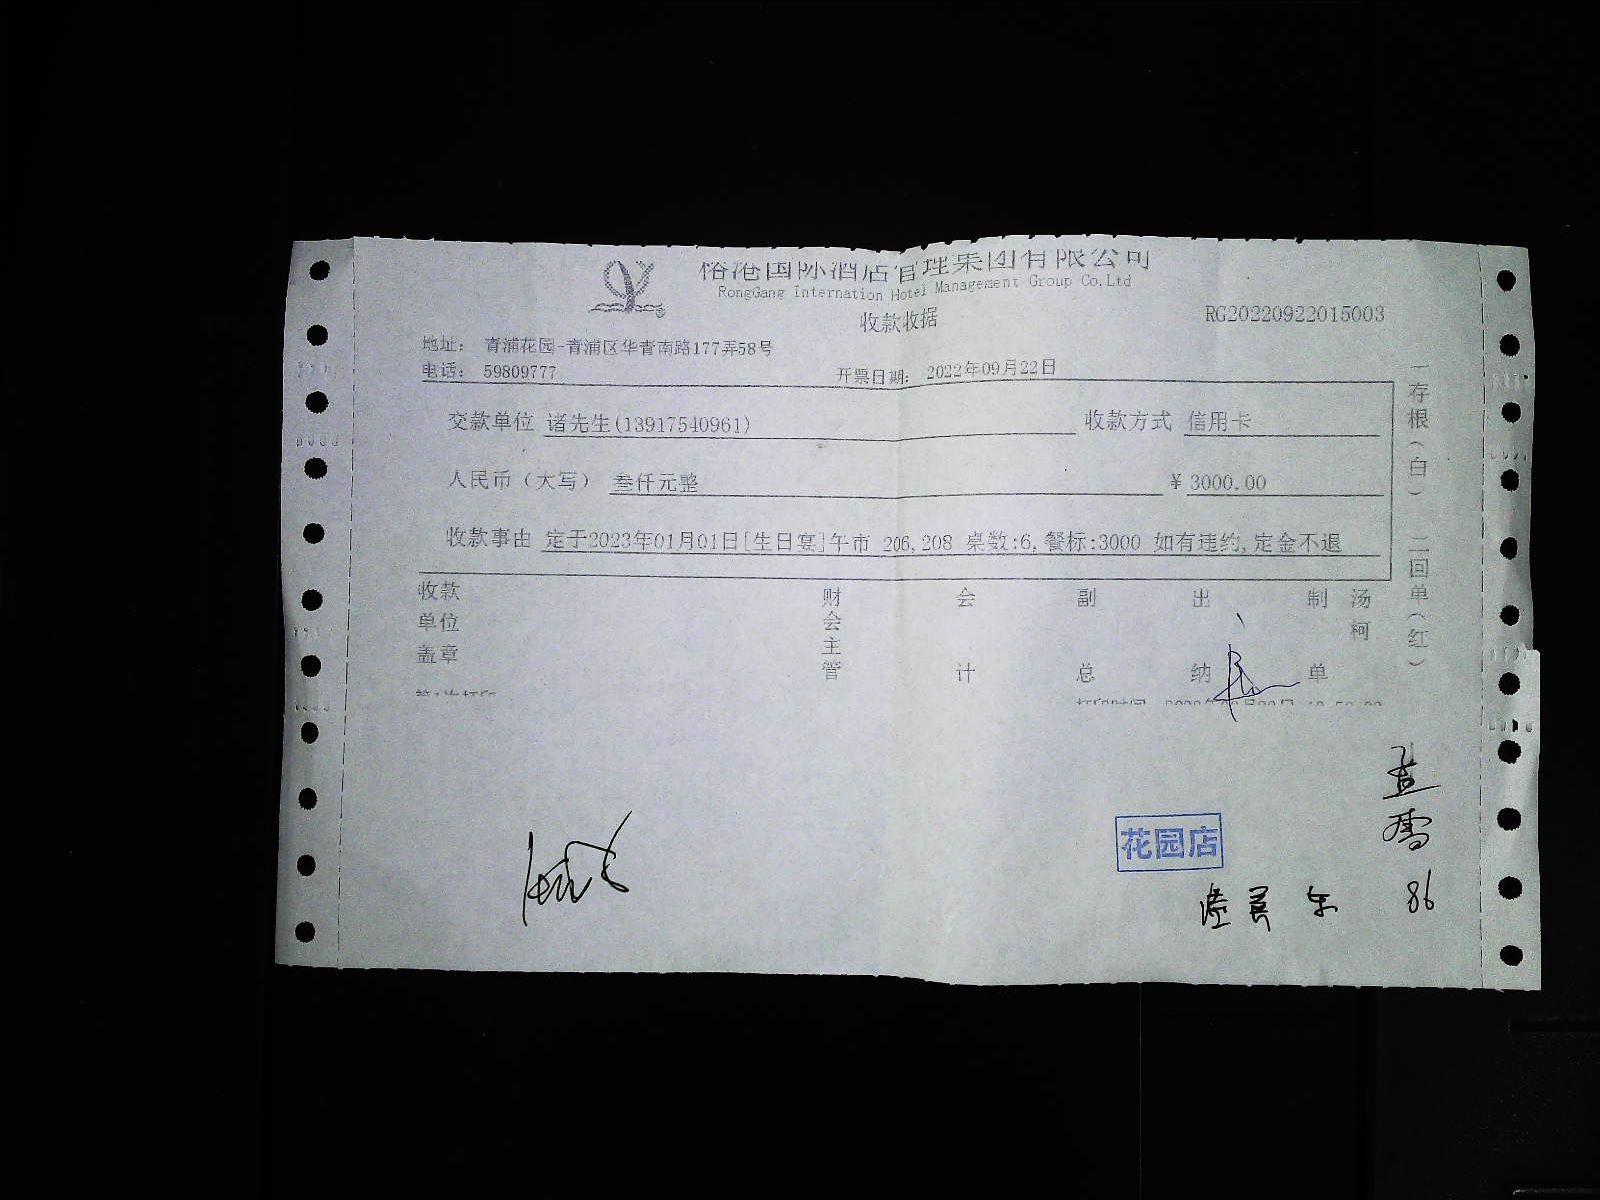 榕港国际酒店管理集团有限公司
RongGang Internation Hotel Management Group Co.Ltd
收款收据
RG20220922015003
地址: 青浦花园-青浦区华青南路177弄58号
电话: 59809777
开票日期: 2022年09月22日
交款单位 诸先生(13917540961) 收款方式 信用卡
人民币（大写） 叁仟元整 ¥ 3000.00
收款事由 定于2023年01月01日[生日宴]午市 206,208 桌数:6,餐标:3000 如有违约,定金不退
收款单位盖章 财会主管 会计 副总 出纳 制单 汤柯
一存根（白） 二回单（红）
花园店
86